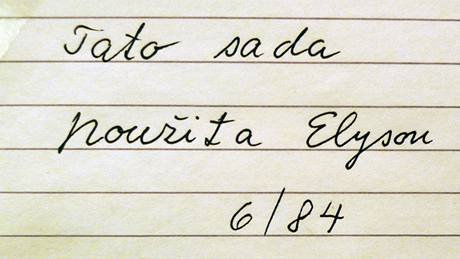 Tato sada
použita Elyson
6/84